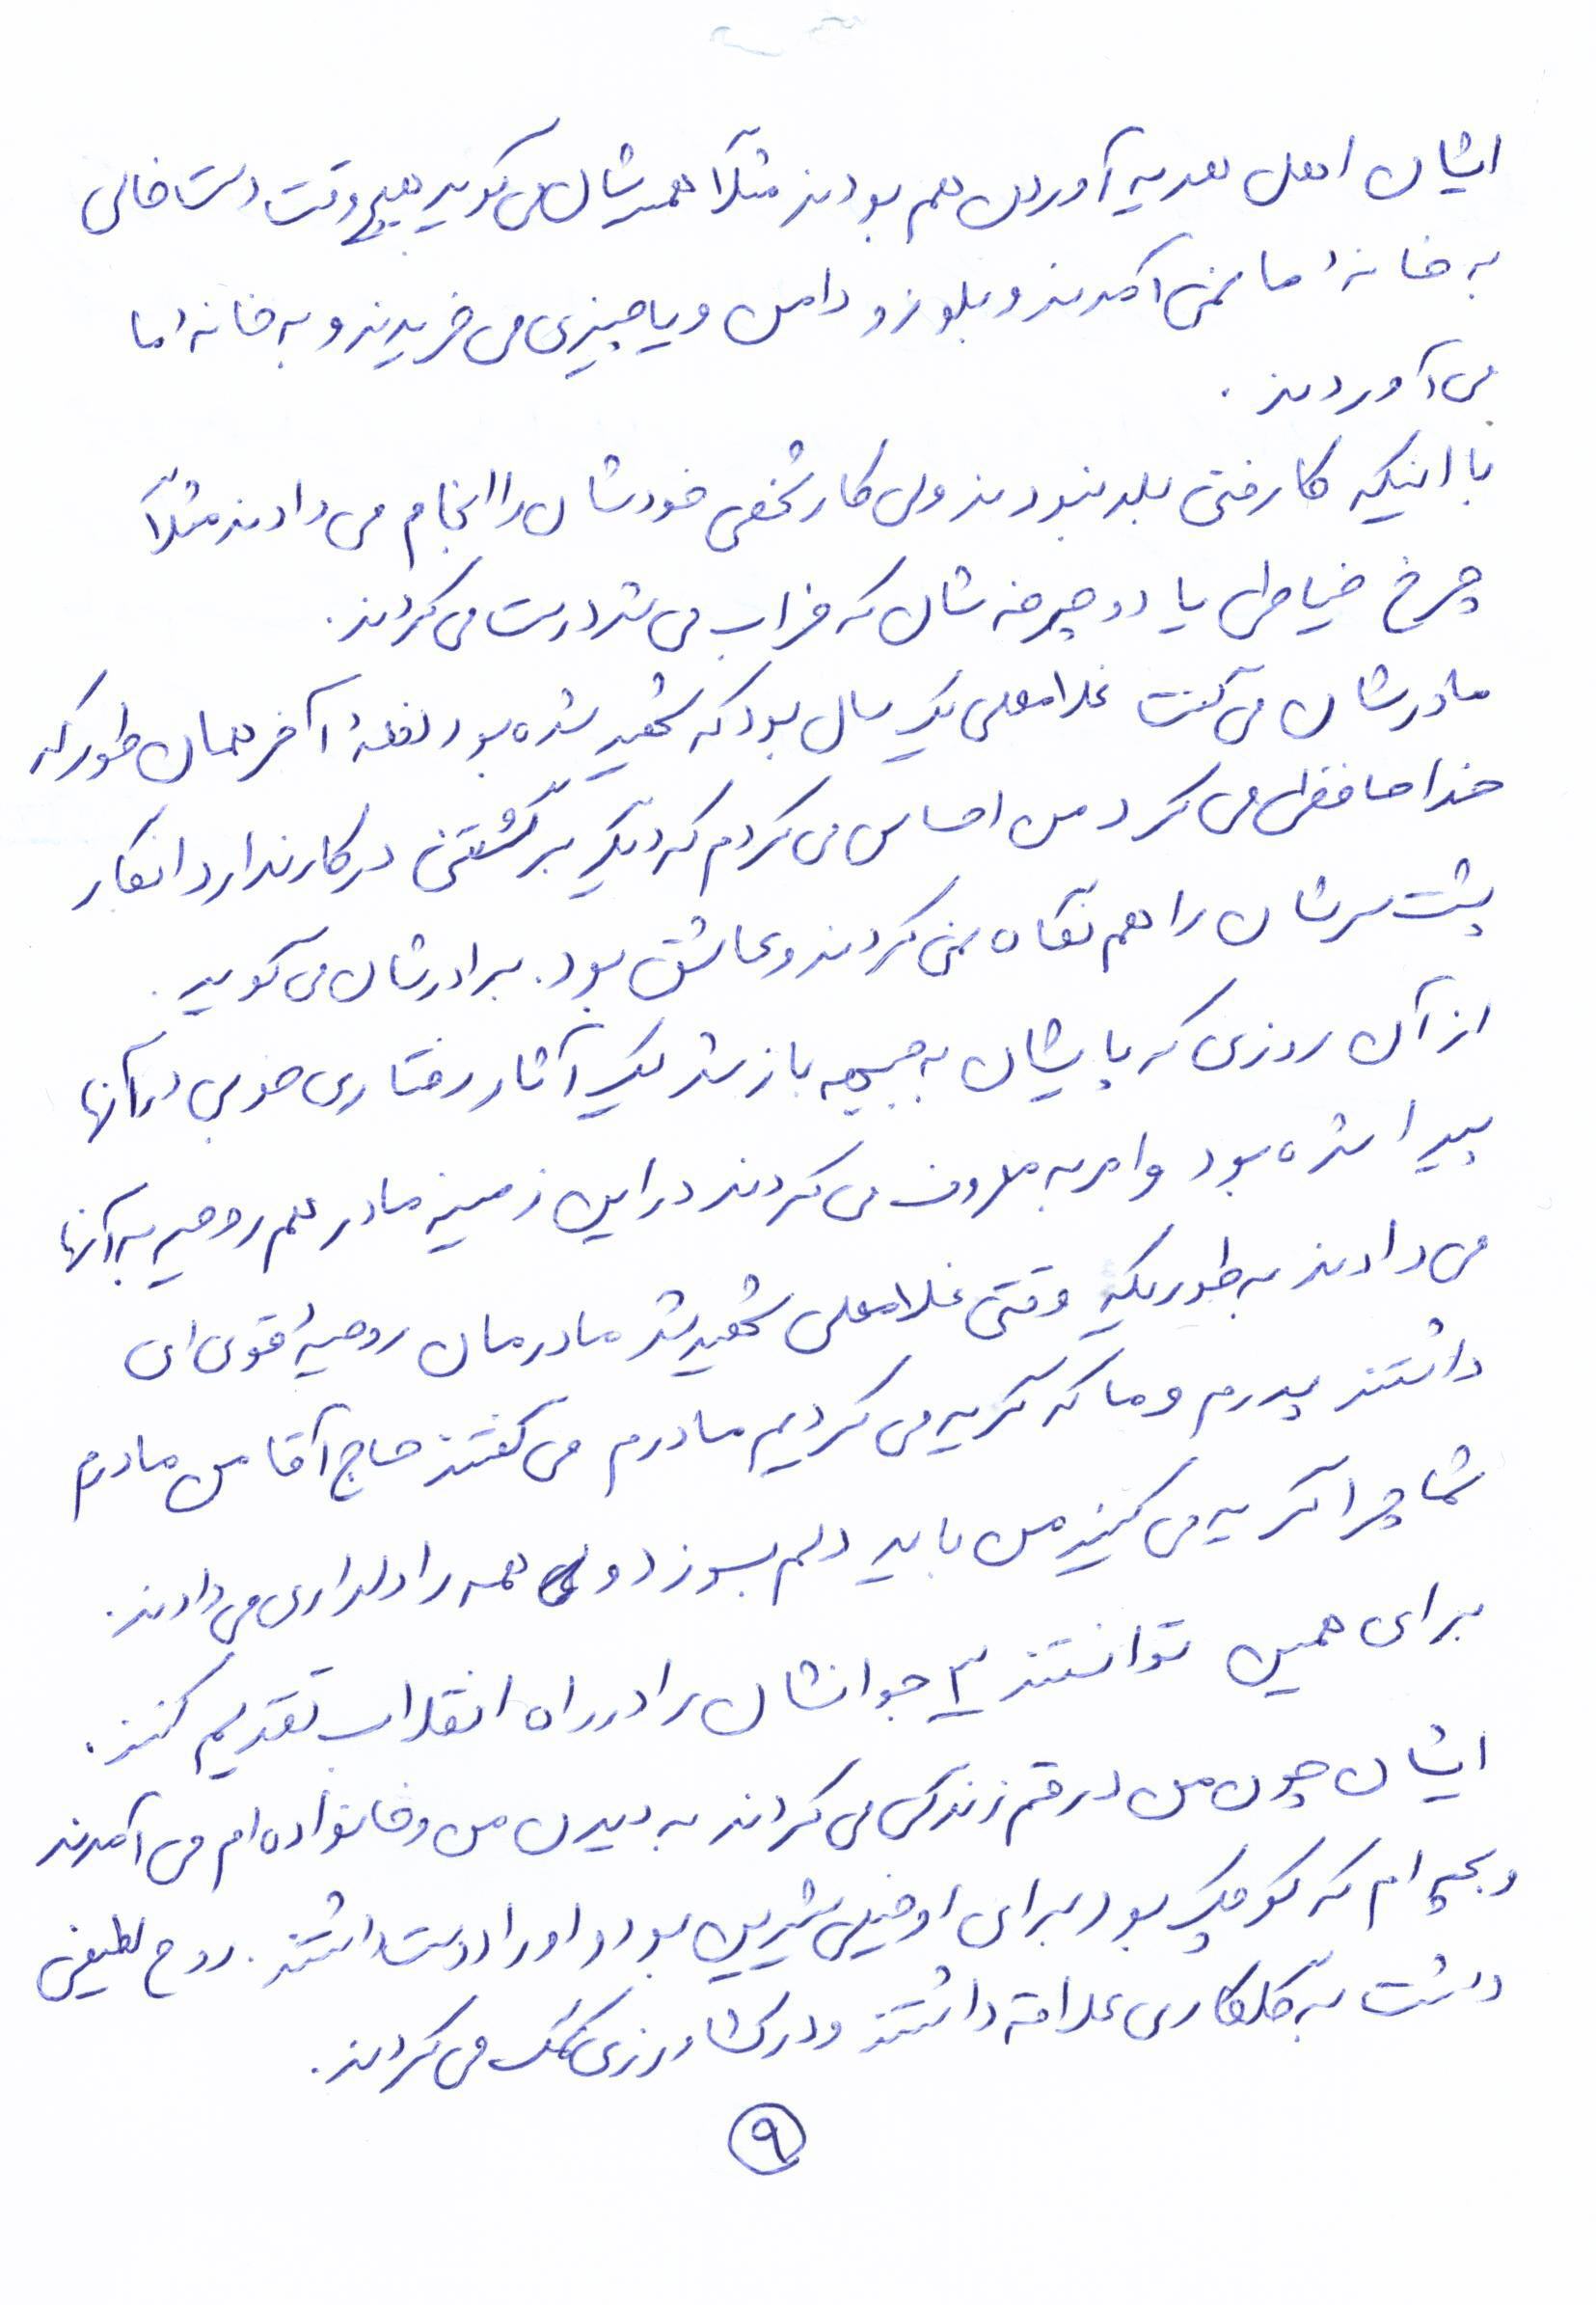 ایشان اهل هدیه آوردن هم بودند مثلاً همسرشان می گوید هیچ وقت دست خالی
به خانهٔ ما نمی آمدند و بلوز و دامن و یا چیزی می خریدند و به خانهٔ ما
می آوردند.
با اینکه کار فنی بلد نبودند ولی کار شخصی خودشان را انجام می دادند مثلاً
چرخ خیاطی یا دوچرخه شان که خراب می شد درست می کردند.
مادرشان می گفت غلامعلی یک سال بود که شهید شده بود لحظهٔ آخر همان طور که
خداحافظی می کرد من احساس می کردم که دیگر برگشتنی در کار ندارد انگار
پشت سرشان را هم نگاه نمی کردند و عاشق بود. برادرشان می گوید.
از آن روزی که پایشان به جبهه باز شد یک آثار رفتاری خوبی در آنها
پیدا شده بود و امر به معروف می کردند در این زمینه مادر هم روحیه به آنها
می دادند به طوریکه وقتی غلامعلی شهید شد مادرمان روحیهٔ قوی ای
داشتند پدرم و ما که گریه می کردیم مادرم می گفتند حاج آقا من مادرم
شما چرا گریه می کنید من باید دلم بسوزد ولی همه را دلداری می دادند.
برای همین توانستند ۳ جوانشان را در راه انقلاب تقدیم کنند.
ایشان چون من در قم زندگی می کردند به دیدن من و خانواده ام می آمدند
و بچه ام که کوچک بود برای او خیلی شیرین بود و او را دوست داشتند. روح لطیفی
داشت به گلکاری علاقه داشتند و در کشاورزی کمک می کردند.
۹